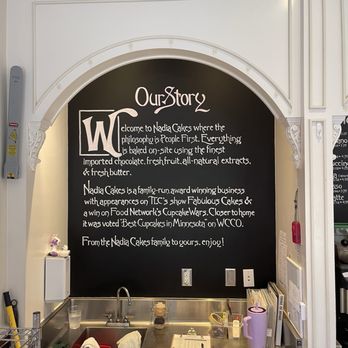 Our Story
Welcome to Nadia Cakes where the
philosophy is People First. Everything
is baked on-site using the finest
imported chocolate, fresh fruit, all-natural extracts,
& fresh butter.
Nadia Cakes is a family-run, award winning business
with appearances on TLC's show Fabulous Cakes &
a win on Food Network's Cupcake Wars. Closer to home
it was voted "Best Cupcakes in Minnesota" on WCCO.
From the Nadia Cakes family to yours, enjoy!